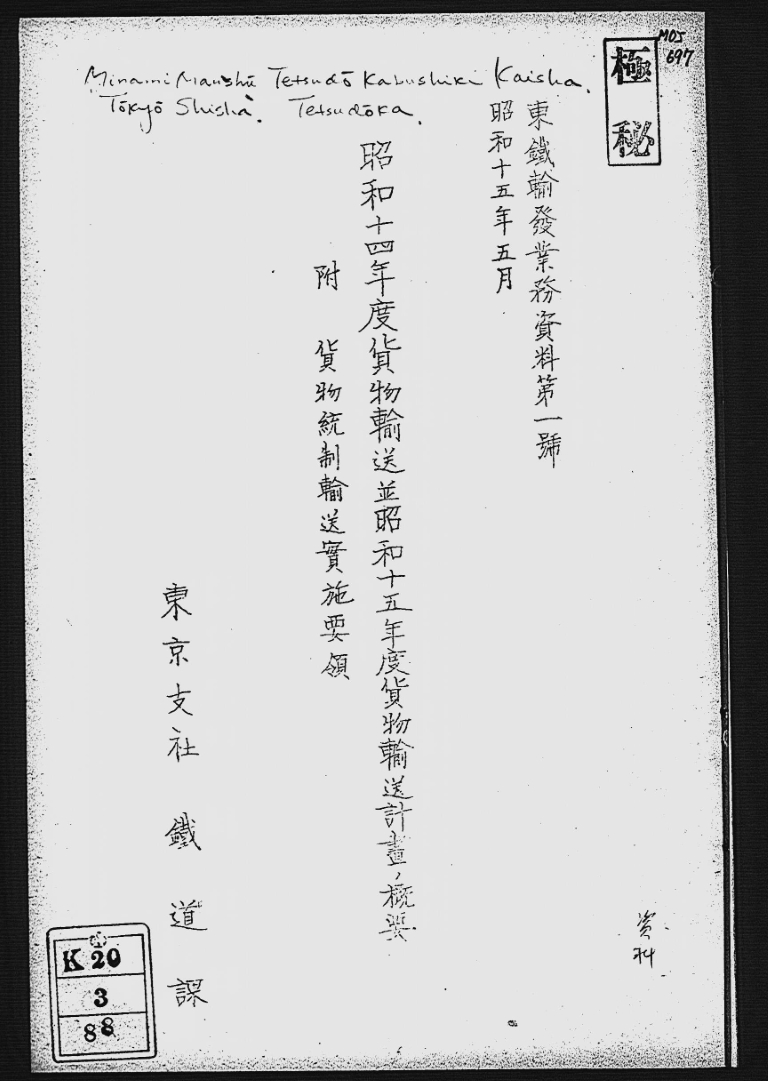 MOJ
697
極秘
Minami Manshū Tetsudō Kabushiki Kaisha.
Tōkyō Shisha. Tetsudōka.
東鐵輸發業務資料第一號
昭和十五年五月
昭和十四年度貨物輸送並昭和十五年度貨物輸送計畫ノ概要
附 貨物統制輸送實施要領
東京支社 鐵道課
資料
K20
3
88